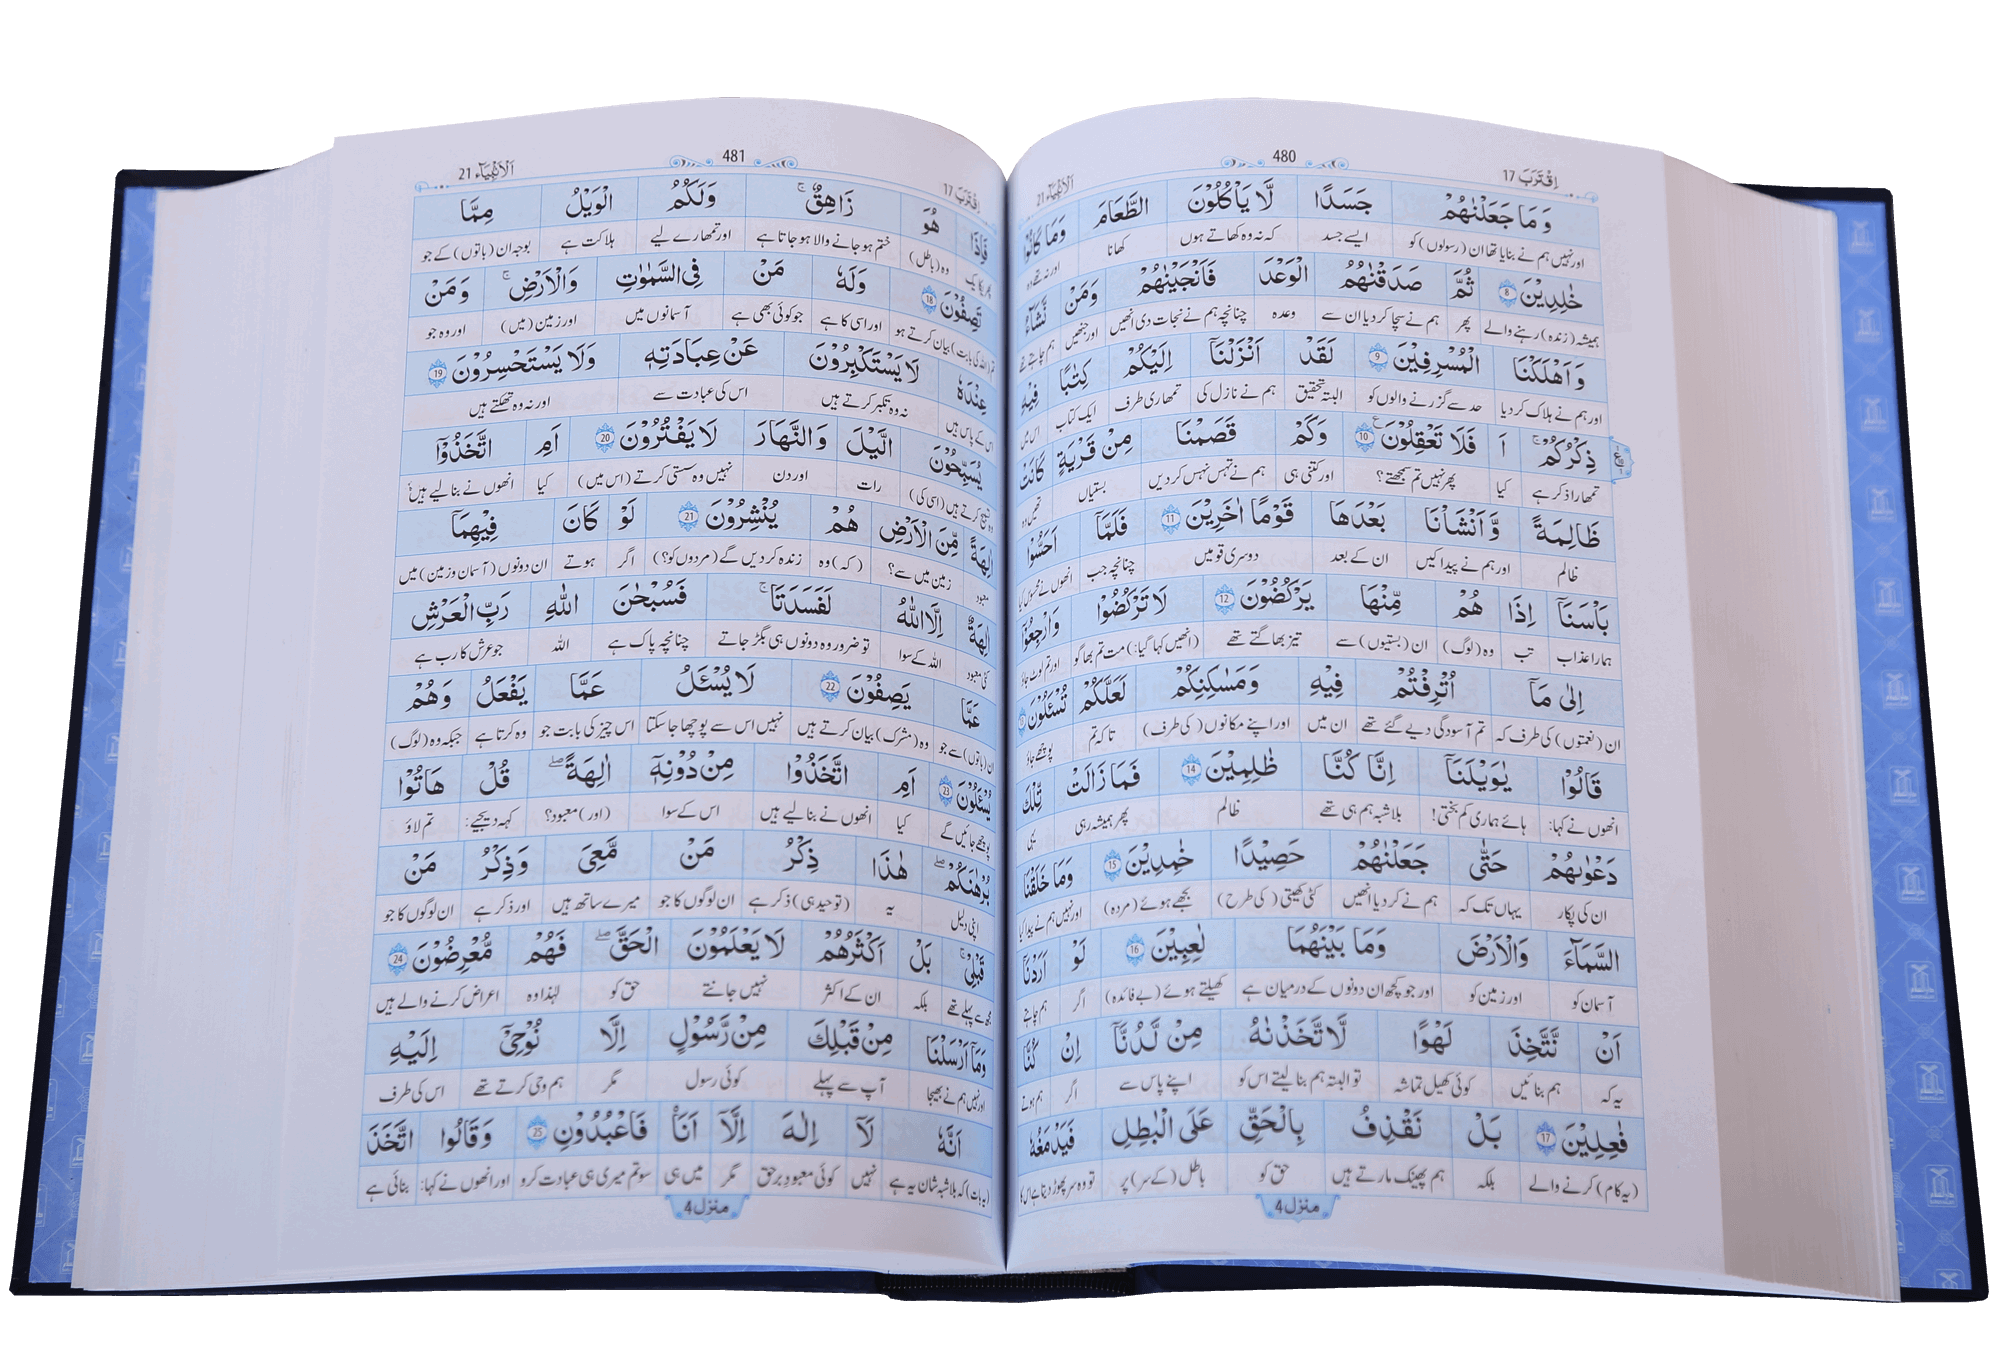 اِقْتَرَبَ 17
480
اَلْاَنْۢبِيَآء 21
وَ مَا جَعَلْنٰهُمْ جَسَدًا لَّا يَاْكُلُوْنَ الطَّعَامَ وَ مَا كَانُوْا
اور نہیں ہم نے بنایا تھا ان (رسولوں) کو ایسے جسد کہ نہ وہ کھاتے ہوں کھانا اور نہ تھے وہ
خٰلِدِيْنَ 8 ثُمَّ صَدَقْنٰهُمُ الْوَعْدَ فَاَنْجَيْنٰهُمْ وَمَنْ نَّشَآءُ
ہمیشہ (زندہ) رہنے والے پھر ہم نے سچا کر دیا ان سے وعدہ چنانچہ ہم نے نجات دی انھیں اور جنھیں ہم چاہتے تھے
وَ اَهْلَكْنَا الْمُسْرِفِيْنَ 9 لَقَدْ اَنْزَلْنَآ اِلَيْكُمْ كِتٰبًا فِيْهِ
اور ہم نے ہلاک کر دیا حد سے گزرنے والوں کو البتہ تحقیق ہم نے نازل کی تمھاری طرف ایک کتاب اس میں
ذِكْرُكُمْ ۚ اَ فَلَا تَعْقِلُوْنَ 10 وَكَمْ قَصَمْنَا مِنْ قَرْيَةٍ كَانَتْ
تمھارا ذکر ہے کیا پھر نہیں تم سمجھتے؟ اور کتنی ہی ہم نے تہس نہس کر دیں بستیاں تھیں وہ
ظَالِمَةً وَّ اَنْشَاْنَا بَعْدَهَا قَوْمًا اٰخَرِيْنَ 11 فَلَمَّآ اَحَسُّوْا
ظالم اور ہم نے پیدا کیں ان کے بعد دوسری قومیں چنانچہ جب انھوں نے محسوس کیا
بَاْسَنَآ اِذَا هُمْ مِّنْهَا يَرْكُضُوْنَ 12 لَا تَرْكُضُوْا وَ ارْجِعُوْٓا
ہمارا عذاب تب وہ (لوگ) ان (بستیوں) سے تیز بھاگتے تھے (انھیں کہا گیا:) مت تم بھاگو اور تم لوٹ جاؤ
اِلٰى مَآ اُتْرِفْتُمْ فِيْهِ وَ مَسٰكِنِكُمْ لَعَلَّكُمْ تُسْـَٔلُوْنَ 13
ان (نعمتوں) کی طرف کہ تم آسودگی دیے گئے تھے ان میں اور اپنے مکانوں (کی طرف) تاکہ تم پوچھے جاؤ
قَالُوْا يٰوَيْلَنَآ اِنَّا كُنَّا ظٰلِمِيْنَ 14 فَمَا زَالَتْ تِّلْكَ
انھوں نے کہا: ہائے ہماری کم بختی! بلاشبہ ہم ہی تھے ظالم پھر ہمیشہ رہی یہی
دَعْوٰىهُمْ حَتّٰى جَعَلْنٰهُمْ حَصِيْدًا خٰمِدِيْنَ 15 وَمَا خَلَقْنَا
ان کی پکار یہاں تک کہ ہم نے کر دیا انھیں کٹی کھیتی (کی طرح) بجھے ہوئے (مردہ) اور نہیں ہم نے پیدا کیا
السَّمَآءَ وَالْاَرْضَ وَمَا بَيْنَهُمَا لٰعِبِيْنَ 16 لَوْ اَرَدْنَآ
آسمان کو اور زمین کو اور جو کچھ ان دونوں کے درمیان ہے کھیلتے ہوئے (بے فائدہ) اگر ہم چاہتے
اَنْ نَّتَّخِذَ لَهْوًا لَّاتَّخَذْنٰهُ مِنْ لَّدُنَّآ اِنْ كُنَّا
یہ کہ ہم بنائیں کوئی کھیل تماشہ تو البتہ ہم بنا لیتے اس کو اپنے پاس سے اگر ہم ہوتے
فٰعِلِيْنَ 17 بَلْ نَقْذِفُ بِالْحَقِّ عَلَى الْبَاطِلِ فَيَدْمَغُهٗ
(یہ کام) کرنے والے بلکہ ہم پھینک مارتے ہیں حق کو باطل (کے سر) پر تو وہ سر پھوڑ دیتا ہے اس کا
منزل 4
اِقْتَرَبَ 17
481
اَلْاَنْۢبِيَآء 21
فَاِذَا هُوَ زَاهِقٌ ۚ وَلَكُمُ الْوَيْلُ مِمَّا
پھر یکایک وہ (باطل) ختم ہو جانے والا ہو جاتا ہے اور تمھارے لیے ہلاکت ہے بوجہ ان (باتوں) کے جو
تَصِفُوْنَ 18 وَلَهٗ مَنْ فِي السَّمٰوٰتِ وَالْاَرْضِ ۚ وَمَنْ
تم (اللہ کی بابت) بیان کرتے ہو اور اسی کا ہے جو کوئی بھی ہے آسمانوں میں اور زمین (میں) اور وہ جو
عِنْدَهٗ لَا يَسْتَكْبِرُوْنَ عَنْ عِبَادَتِهٖ وَلَا يَسْتَحْسِرُوْنَ 19
اس کے پاس ہیں نہ وہ تکبر کرتے ہیں اس کی عبادت سے اور نہ وہ تھکتے ہیں
يُسَبِّحُوْنَ الَّيْلَ وَالنَّهَارَ لَا يَفْتُرُوْنَ 20 اَمِ اتَّخَذُوْٓا
وہ تسبیح کرتے ہیں (اسی کی) رات اور دن نہیں وہ سستی کرتے (اس میں) کیا انھوں نے بنا لیے ہیں
اٰلِهَةً مِّنَ الْاَرْضِ هُمْ يُنْشِرُوْنَ 21 لَوْ كَانَ فِيْهِمَآ
معبود زمین میں سے؟ (کہ) وہ زندہ کر دیں گے (مردوں کو؟) اگر ہوتے ان دونوں (آسمان و زمین) میں
اٰلِهَةٌ اِلَّا اللّٰهُ لَفَسَدَتَا ۚ فَسُبْحٰنَ اللّٰهِ رَبِّ الْعَرْشِ
کئی معبود اللہ کے سوا تو ضرور وہ دونوں ہی بگڑ جاتے چنانچہ پاک ہے اللہ جو عرش کا رب ہے
عَمَّا يَصِفُوْنَ 22 لَا يُسْـَٔلُ عَمَّا يَفْعَلُ وَهُمْ
ان (باتوں) سے جو وہ (مشرک) بیان کرتے ہیں نہیں اس سے پوچھا جا سکتا اس چیز کی بابت جو وہ کرتا ہے جبکہ وہ (لوگ)
يُسْـَٔلُوْنَ 23 اَمِ اتَّخَذُوْا مِنْ دُوْنِهٖٓ اٰلِهَةً ؕ قُلْ هَاتُوْا
پوچھے جائیں گے کیا انھوں نے بنا لیے ہیں اس کے سوا (اور) معبود؟ کہہ دیجیے: تم لاؤ
بُرْهَانَكُمْ ۚ هٰذَا ذِكْرُ مَنْ مَّعِيَ وَذِكْرُ مَنْ
اپنی دلیل یہ (توحید ہی) ذکر ہے ان لوگوں کا جو میرے ساتھ ہیں اور ذکر ہے ان لوگوں کا جو
قَبْلِيْ ؕ بَلْ اَكْثَرُهُمْ لَا يَعْلَمُوْنَ الْحَقَّ فَهُمْ مُّعْرِضُوْنَ 24
مجھ سے پہلے تھے بلکہ ان کے اکثر نہیں جانتے حق کو لہٰذا وہ اعراض کرنے والے ہیں
وَمَآ اَرْسَلْنَا مِنْ قَبْلِكَ مِنْ رَّسُوْلٍ اِلَّا نُوْحِيْٓ اِلَيْهِ
اور نہیں ہم نے بھیجا آپ سے پہلے کوئی رسول مگر ہم وحی کرتے تھے اس کی طرف
اَنَّهٗ لَآ اِلٰهَ اِلَّآ اَنَا فَاعْبُدُوْنِ 25 وَقَالُوا اتَّخَذَ
(یہ بات) کہ بلاشبہ شان یہ ہے نہیں کوئی معبودِ برحق مگر میں ہی سو تم میری ہی عبادت کرو اور انھوں نے کہا: بنائی ہے
منزل 4